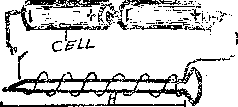 CELL
H